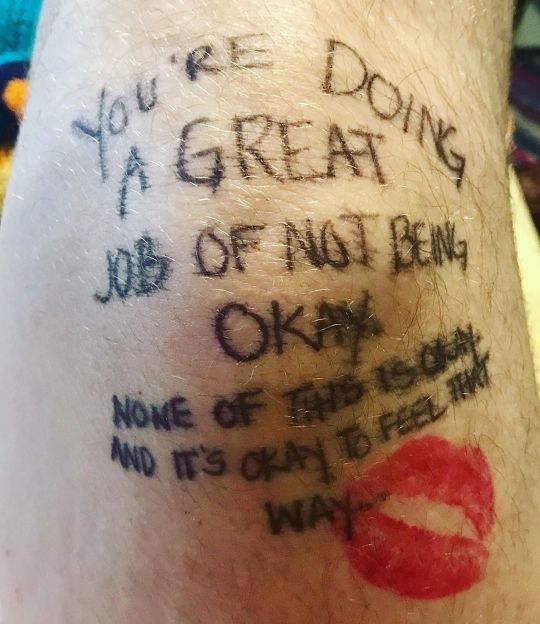 YOU'RE DOING
A GREAT
JOB OF NOT BEING
OKAY
NONE OF THIS IS OKAY
AND IT'S OKAY TO FEEL THAT
WAY...